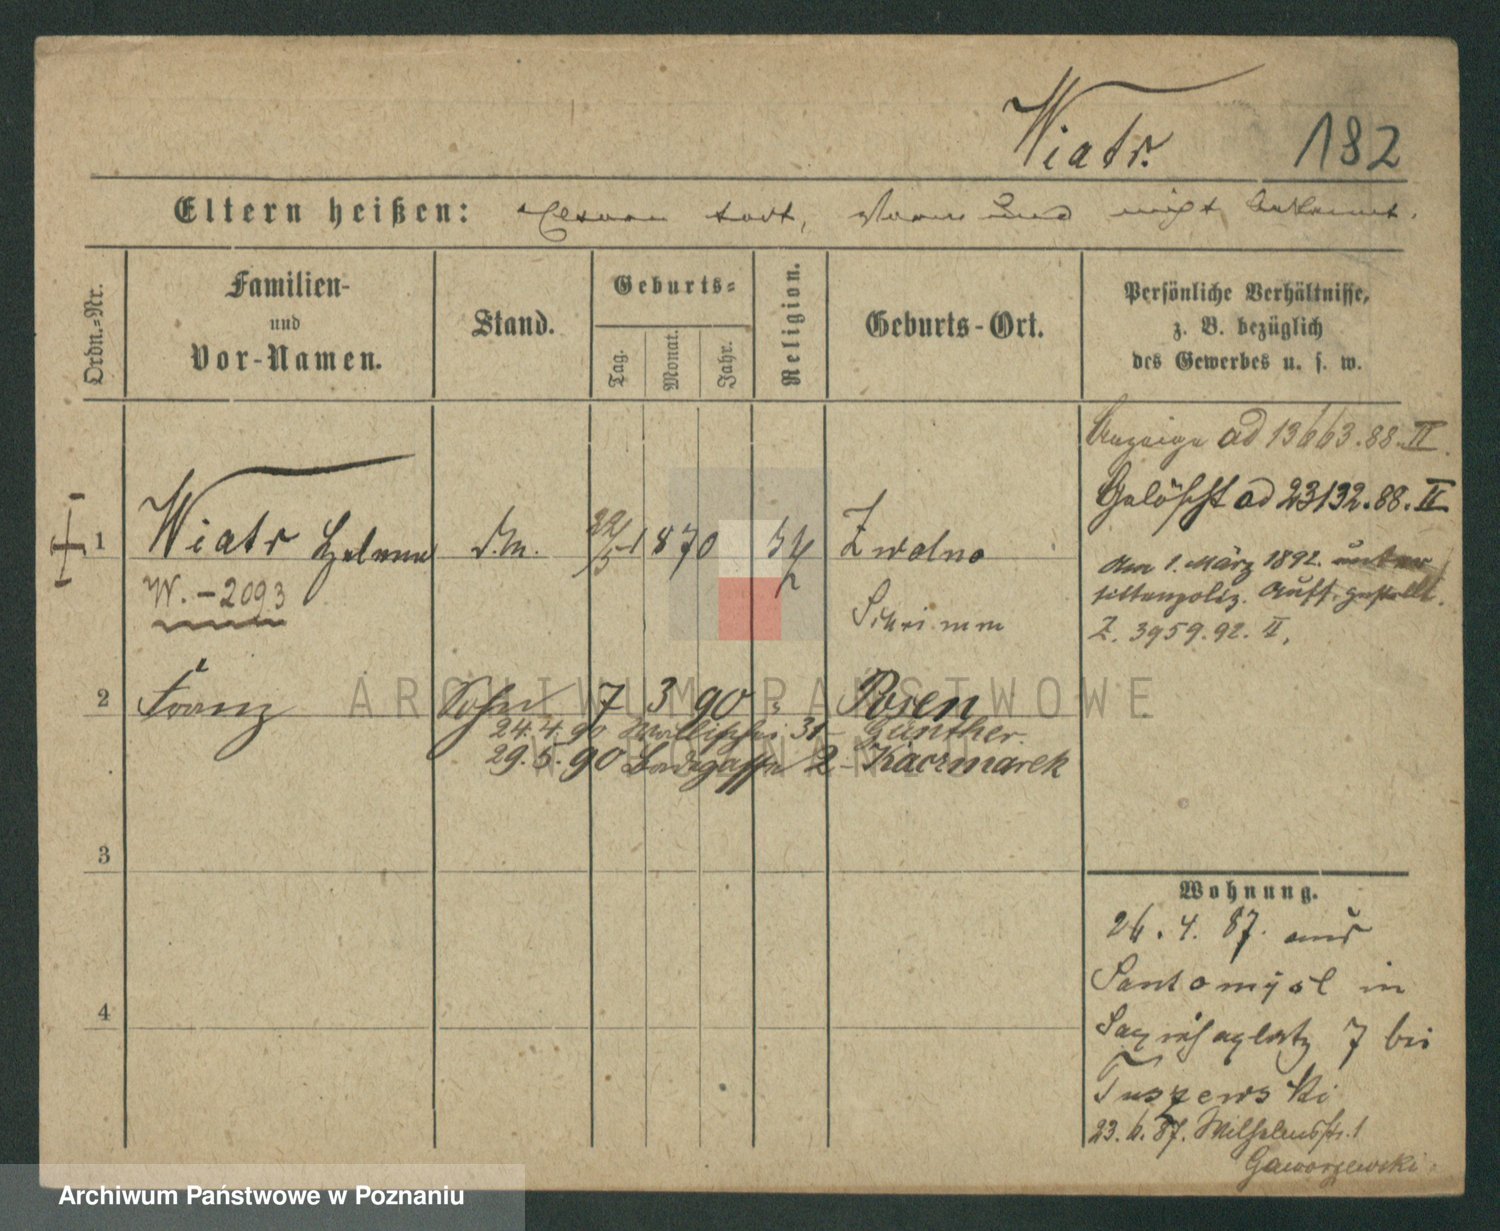 Wiatr. 182
Eltern heißen: Eltern todt, Vormund nicht bekannt.
Ordn.-Nr.
Familien-
und
Vor-Namen.
Stand.
Geburts-
Tag.
Monat.
Jahr.
Religion.
Geburts-Ort.
Persönliche Verhältnisse,
z. B. bezüglich
des Gewerbes u. s. w.
Anzeige ad 13663.88.II.
Gelöscht ad 23132.88.II
1 Wiatr Helene d.M. 22/5 1870 Zwolno
Schrimm
W. - 2093
den 1. März 1892. unter
sittenpoliz. Aufs. gestellt.
Z. 3959.92.II.
2 Franz Sohn 7 3 90 Posen
24.4.90 Wallischei 31 - Günther.
29.5.90 2 - Kaczmarek
3
4
Wohnung.
26.4.87. aus
Santomysl in
Sapiehaplatz 7 bei
Tuszewski
23.6.87. Wilhelmstr. 1
Gaworzewski
ARCHIWUM PAŃSTWOWE
W POZNANIU
Archiwum Państwowe w Poznaniu